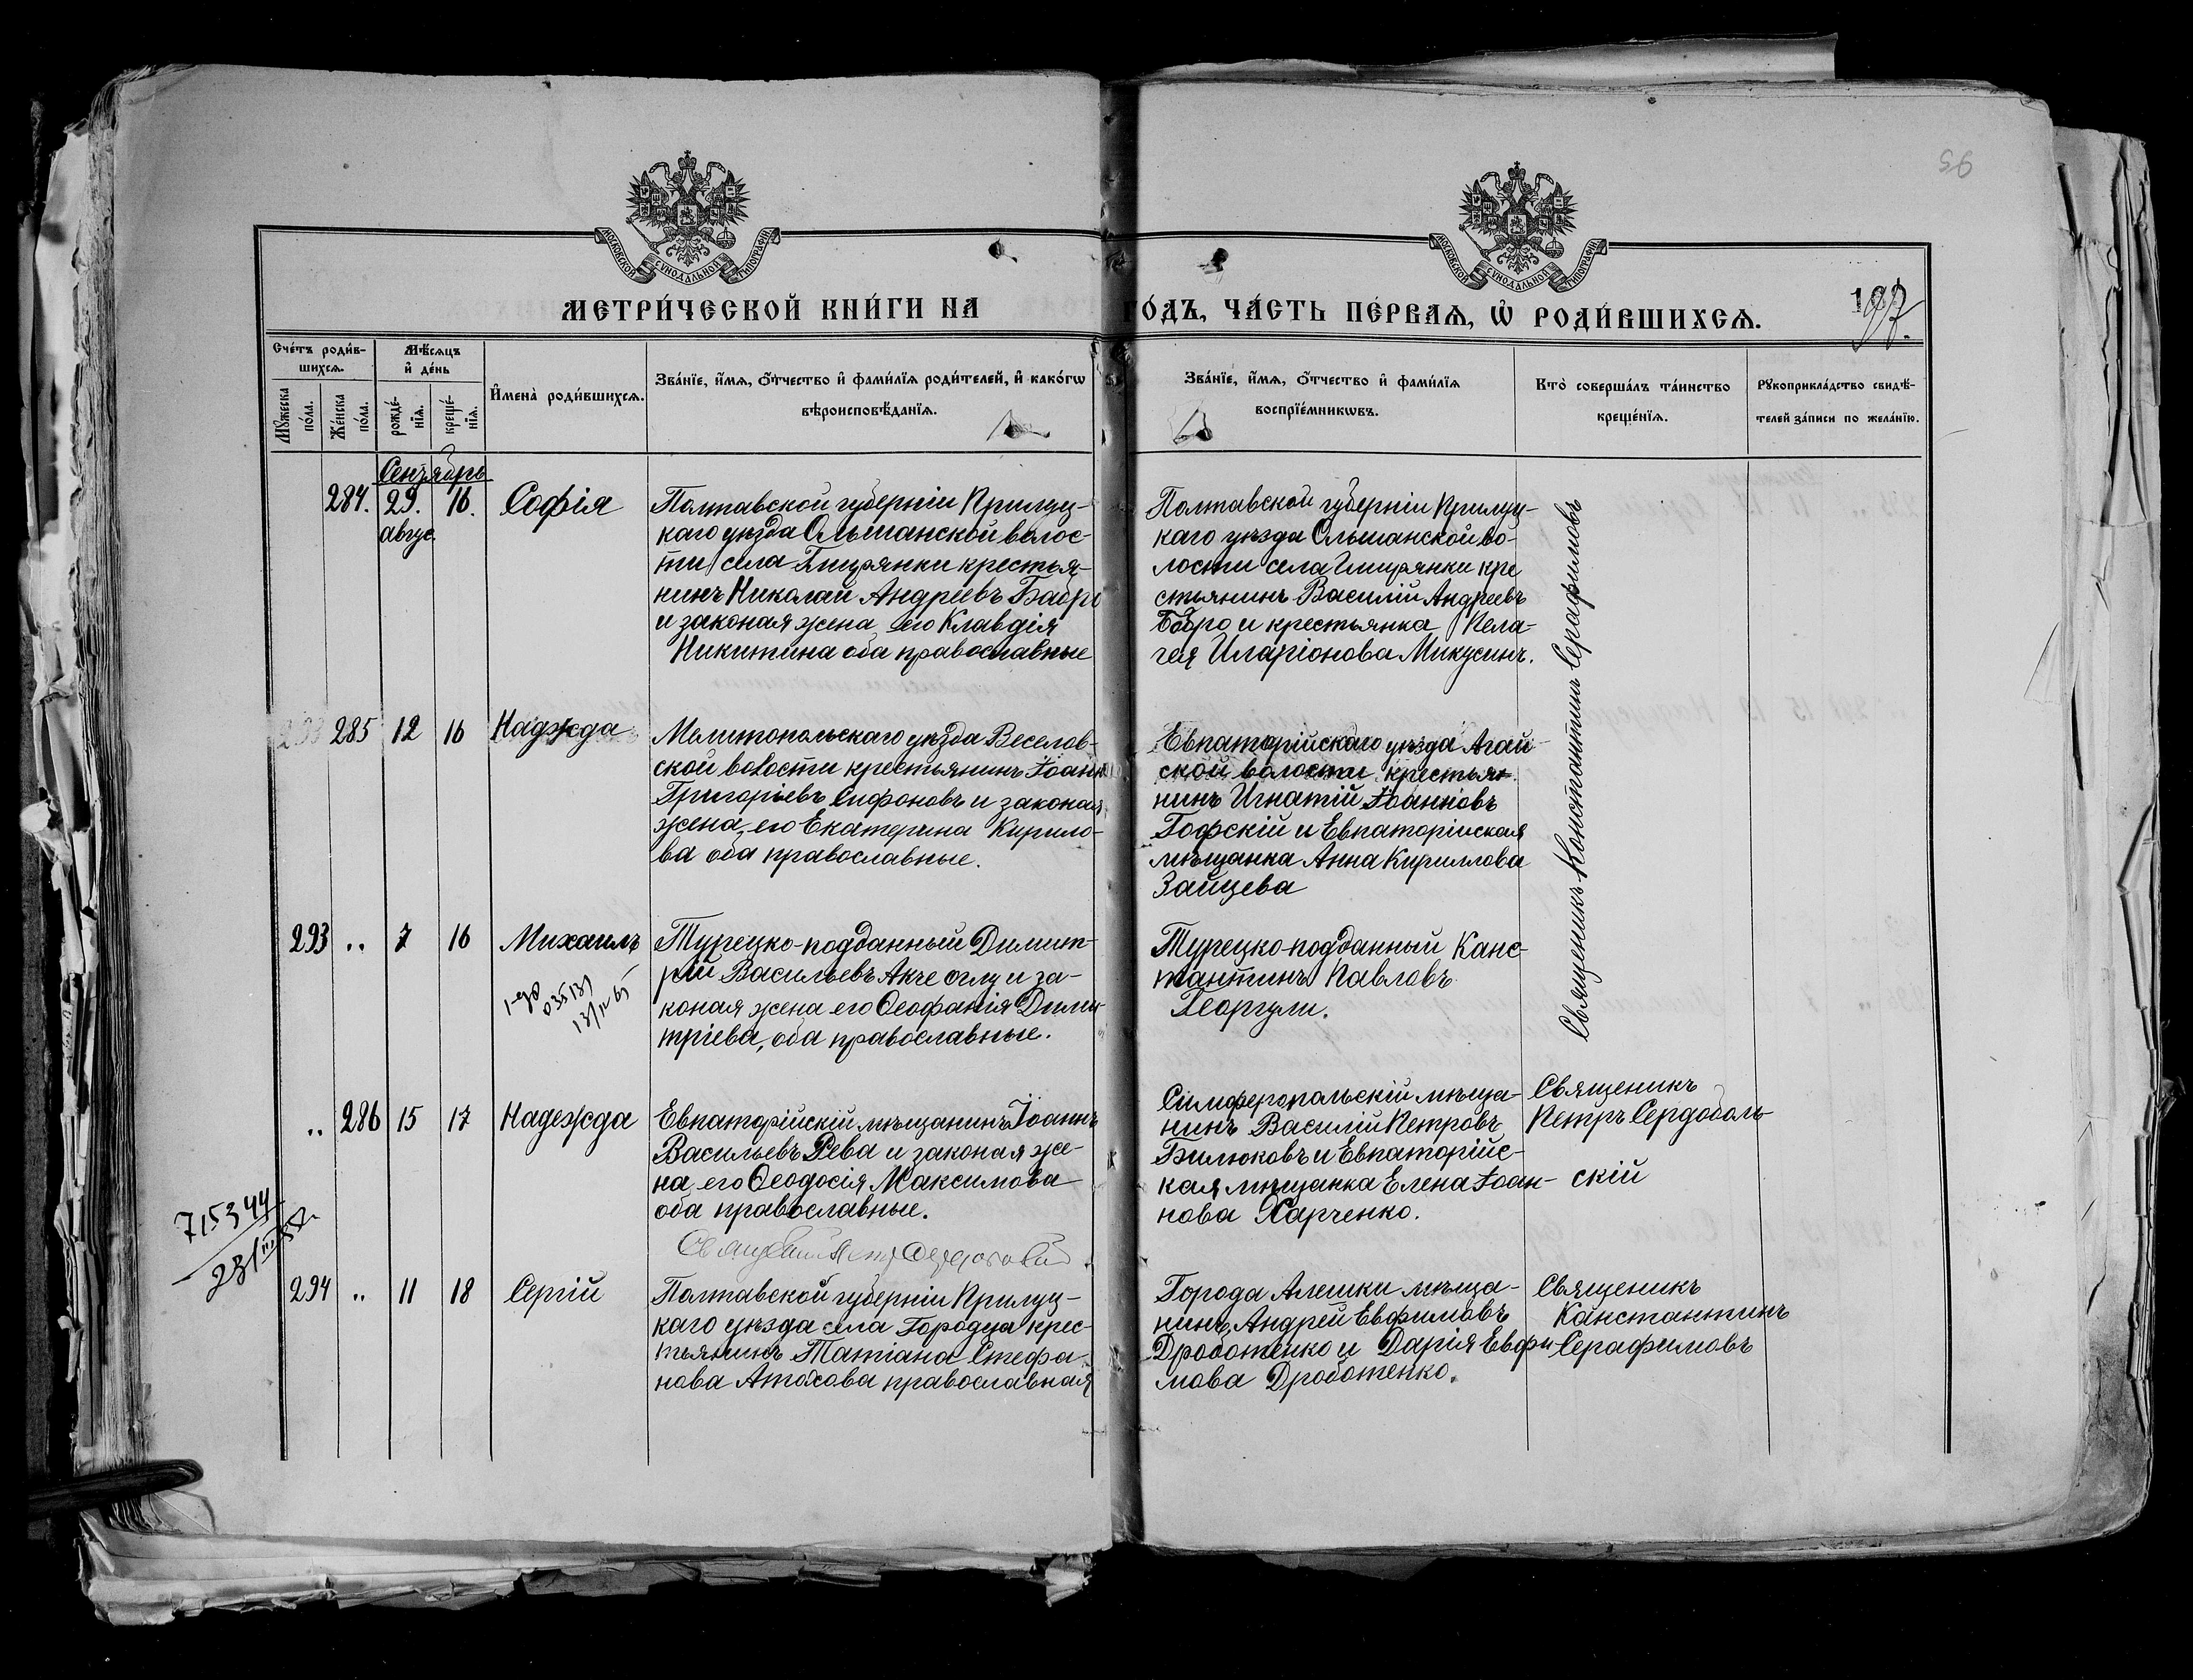 96
МОСКОВСКОЙ СѴНОДАЛЬНОЙ ТИПОГРАФІИ
МОСКОВСКОЙ СѴНОДАЛЬНОЙ ТИПОГРАФІИ
МЕТРИ́ЧЕСКОЙ КНИ́ГИ НА
ГО́ДЪ, ЧА́СТЬ ПЕ́РВАѦ, Ѡ҆ РОДИ́ВШИХСѦ.
Сче́тъ роди́в-
шихсѧ.
Мѣ́сѧцъ
и҆ де́нь
Мꙋ́жеска
по́ла.
Же́нска
по́ла.
рожде́-
нїѧ.
креще́-
нїѧ.
И҆мена̀ роди́вшихсѧ.
Зва́нїе, и҆́мѧ, ѻ҆́тчество и҆ фами́лїѧ роди́телей, и҆ како́гѡ
вѣроисповѣ́данїѧ.
Зва́нїе, и҆́мѧ, ѻ҆́тчество и҆ фами́лїѧ
воспрїе́мникѡвъ.
Кто̀ соверша́лъ та́инство
креще́нїѧ.
Рꙋкоприкла́дство свидѣ́-
телей за́писи по жела́нїю.
Сентябрь
284. 29. 16. Софія
авгус.
Полтавской губерніи Прилуц-
каго уѣзда Ольшанской волос-
ти села крестья-
нинъ Николай Андреевъ Бобро
и законая жена его Клавдія
Никитина оба православные
Полтавской губерніи Прилуц-
каго уѣзда Ольшанской во-
лости села кре
стьянинъ Василій Андреевъ
Бобро и крестьянка Пела-
гея Иларіонова Микусинъ.
Священикъ Константинъ Серафимовъ
285 12 16 Надежда
Мелитопольскаго уѣзда Веселов-
ской волости крестьянинъ Іоаннъ
Григорьевъ Сифоновъ и законая
жена его Екатерина Кирило-
ва оба православные.
Евпаторійскаго уѣзда Агай-
ской волости крестья-
нинъ Игнатій Іоанновъ
Гофскій и Евпаторійская
мѣщанка Анна Кириллова
Зайцева
293 " 7 16 Михаилъ
Турецко-подданный Димит-
рій Васильевъ Акче оглу и за-
коная жена его Ѳеофанія Дими
тріева, оба православные.
Турецко-подданный Канс-
тантинъ Павловъ
Георгули.
" 286 15 17 Надежда
Евпаторійскій мѣщанинъ Іоаннъ
Васильевъ Рева и законая же-
на его Ѳеодосія Максимова
оба православные.
Симферопольскій мѣща-
нинъ Василій Петровъ
Билюковъ и Евпаторійс-
кая мѣщанка Елена Іоан-
нова Харченко.
Священикъ
Петръ Сердоболь-
скій
715344
294 " 11 18 Сергій
Полтавской губерніи Прилуц-
каго уѣзда села Городца крес-
тьянинъ Татіана Стефа
нова православная
Города Алешки мѣща-
нинъ, Андрей Евфимовъ
Дроботенко и Дарія Евфи-
мова Дроботенко.
Священикъ
Канстантинъ
Серафимовъ